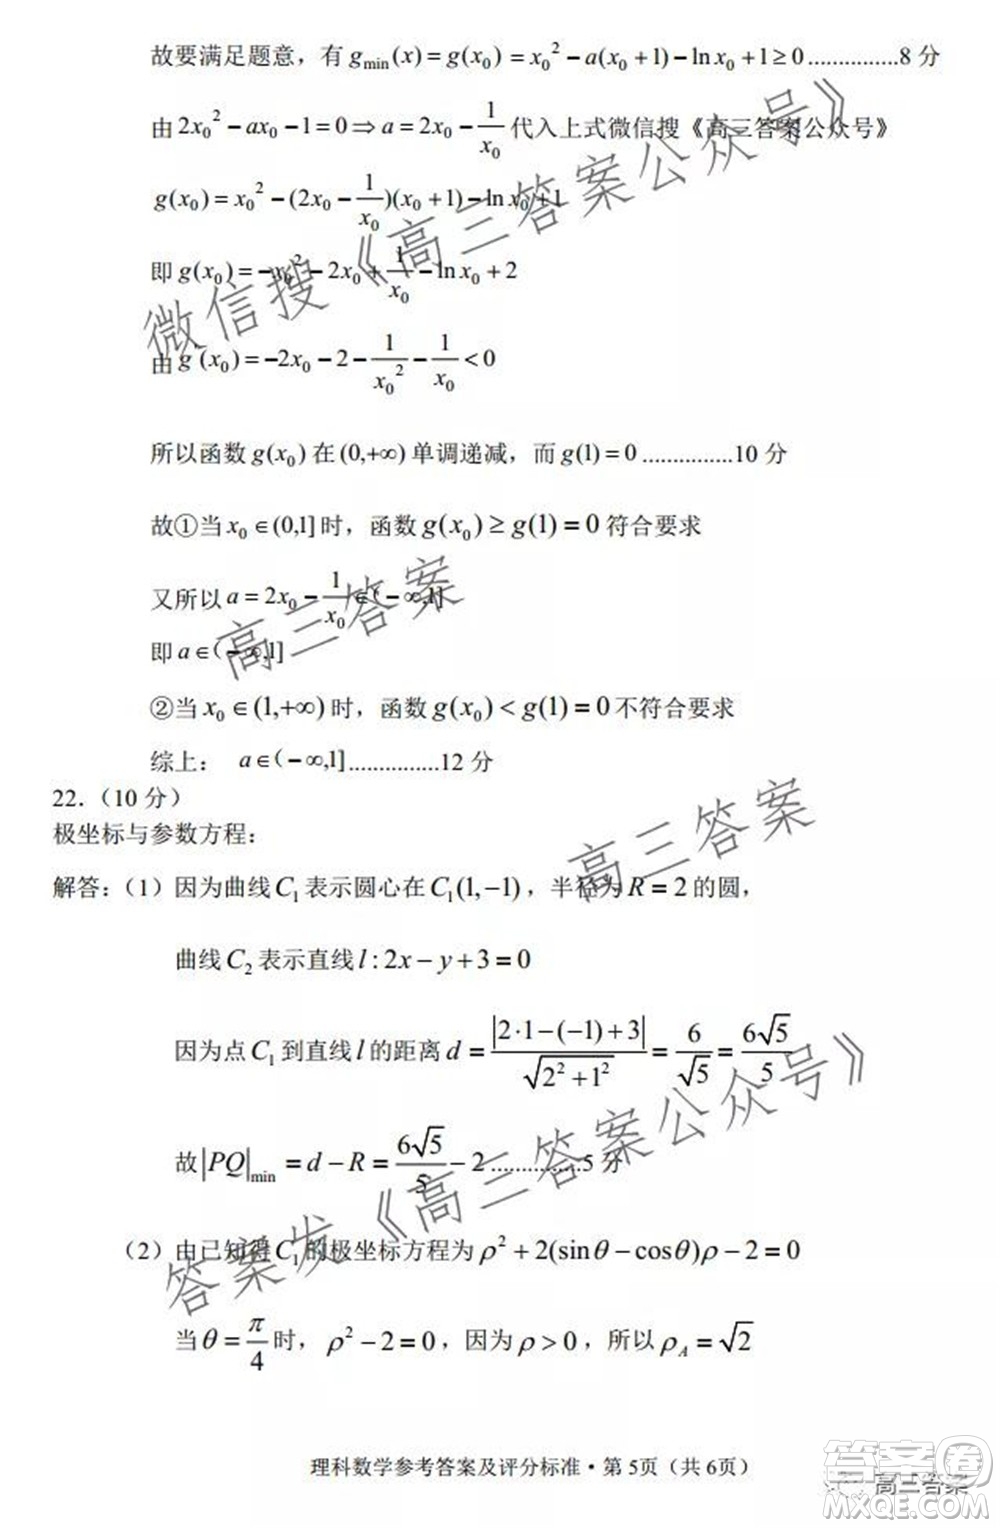 故要满足题意，有 gmin(x)=g(x₀)=x₀²−a(x₀+1)−ln x₀+1≥0...............8 分
由 2x₀²−ax₀−1=0⇒a=2x₀−1/x₀ 代入上式微信搜《高三答案公众号》
g(x₀)=x₀²−(2x₀−1/x₀)(x₀+1)−ln x₀+1
即 g(x₀)=−x₀²−2x₀+1/x₀−ln x₀+2
由 g (x₀)=−2x₀−2−1/x₀²−1/x₀<0
所以函数 g(x₀) 在 (0,+∞) 单调递减，而 g(1)=0...............10 分
故①当 x₀∈(0,1] 时，函数 g(x₀)≥g(1)=0 符合要求
又所以 a=2x₀−1/x₀∈(−∞,1]
即 a∈(−∞,1]
②当 x₀∈(1,+∞) 时，函数 g(x₀)<g(1)=0 不符合要求
综上： a∈(−∞,1]...............12 分
22．（10 分）
极坐标与参数方程：
解答：（1）因为曲线 C₁ 表示圆心在 C₁(1,−1)，半径为 R=2 的圆，
曲线 C₂ 表示直线 l:2x−y+3=0
因为点 C₁ 到直线 l 的距离 d=|2·1−(−1)+3|/√(2²+1²)=6/√5=6√5/5
故 |PQ|min=d−R=6√5/5−2...............5 分
（2）由已知得 C₁ 的极坐标方程为 ρ²+2(sinθ−cosθ)ρ−2=0
当 θ=π/4 时，ρ²−2=0，因为 ρ>0，所以 ρA=√2
理科数学参考答案及评分标准·第 5页（共 6页）
微信搜《高三答案公众号》
高三答案
高三答案
答案发《高三答案公众号》
高三答案
答案圈
MXQE.COM